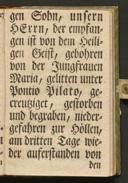 gen Sohn, unsern
HErrn, der empfan-
gen ist von dem Heili-
gen Geist, gebohren
von der Jungfrauen
Maria, gelitten unter
Pontio Pilato, ge-
creutziget, gestorben
und begraben, nieder-
gefahren zur Höllen,
am dritten Tage wie-
der auferstanden von
den